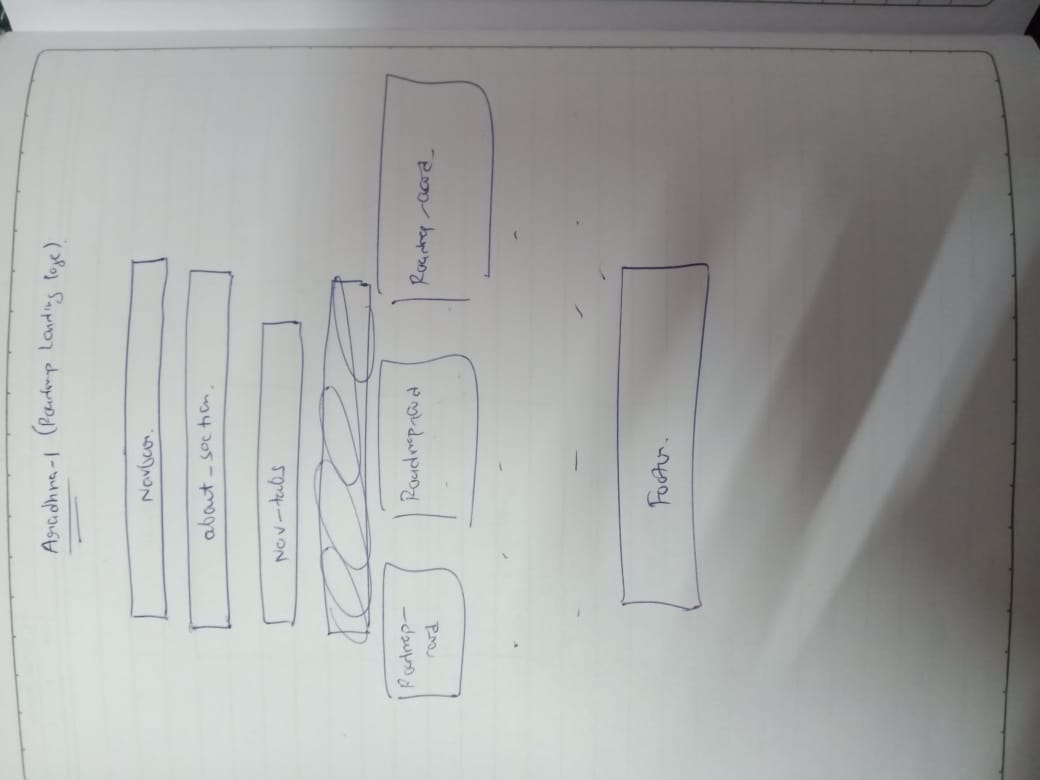 (Roadmap Landing Page).
Navbar.
about-section.
Nav-tabs
Roadmap-
card
Roadmap-card
Roadmap-card
Footer.